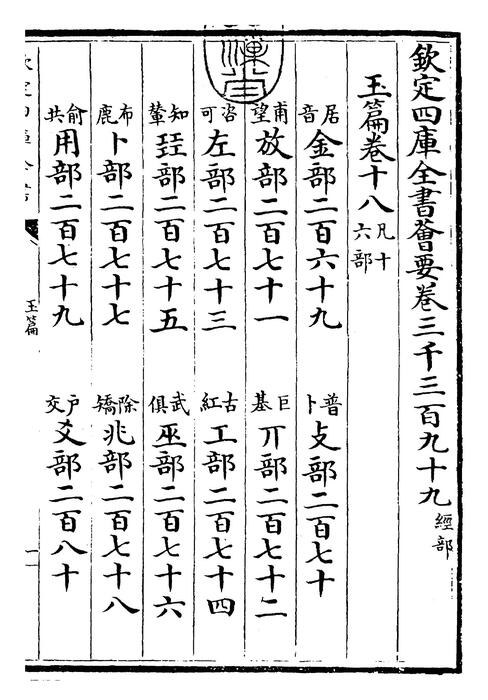 欽定四庫全書薈要卷三千三百九十九 經部
玉篇卷十八 凡十六部
居音金部二百六十九 普卜攴部二百七十
甫望放部二百七十一 巨基丌部二百七十二
咨可左部二百七十三 古紅工部二百七十四
知輦㠭部二百七十五 武俱巫部二百七十六
布鹿卜部二百七十七 除矯兆部二百七十八
俞共用部二百七十九 戶交爻部二百八十
玉篇